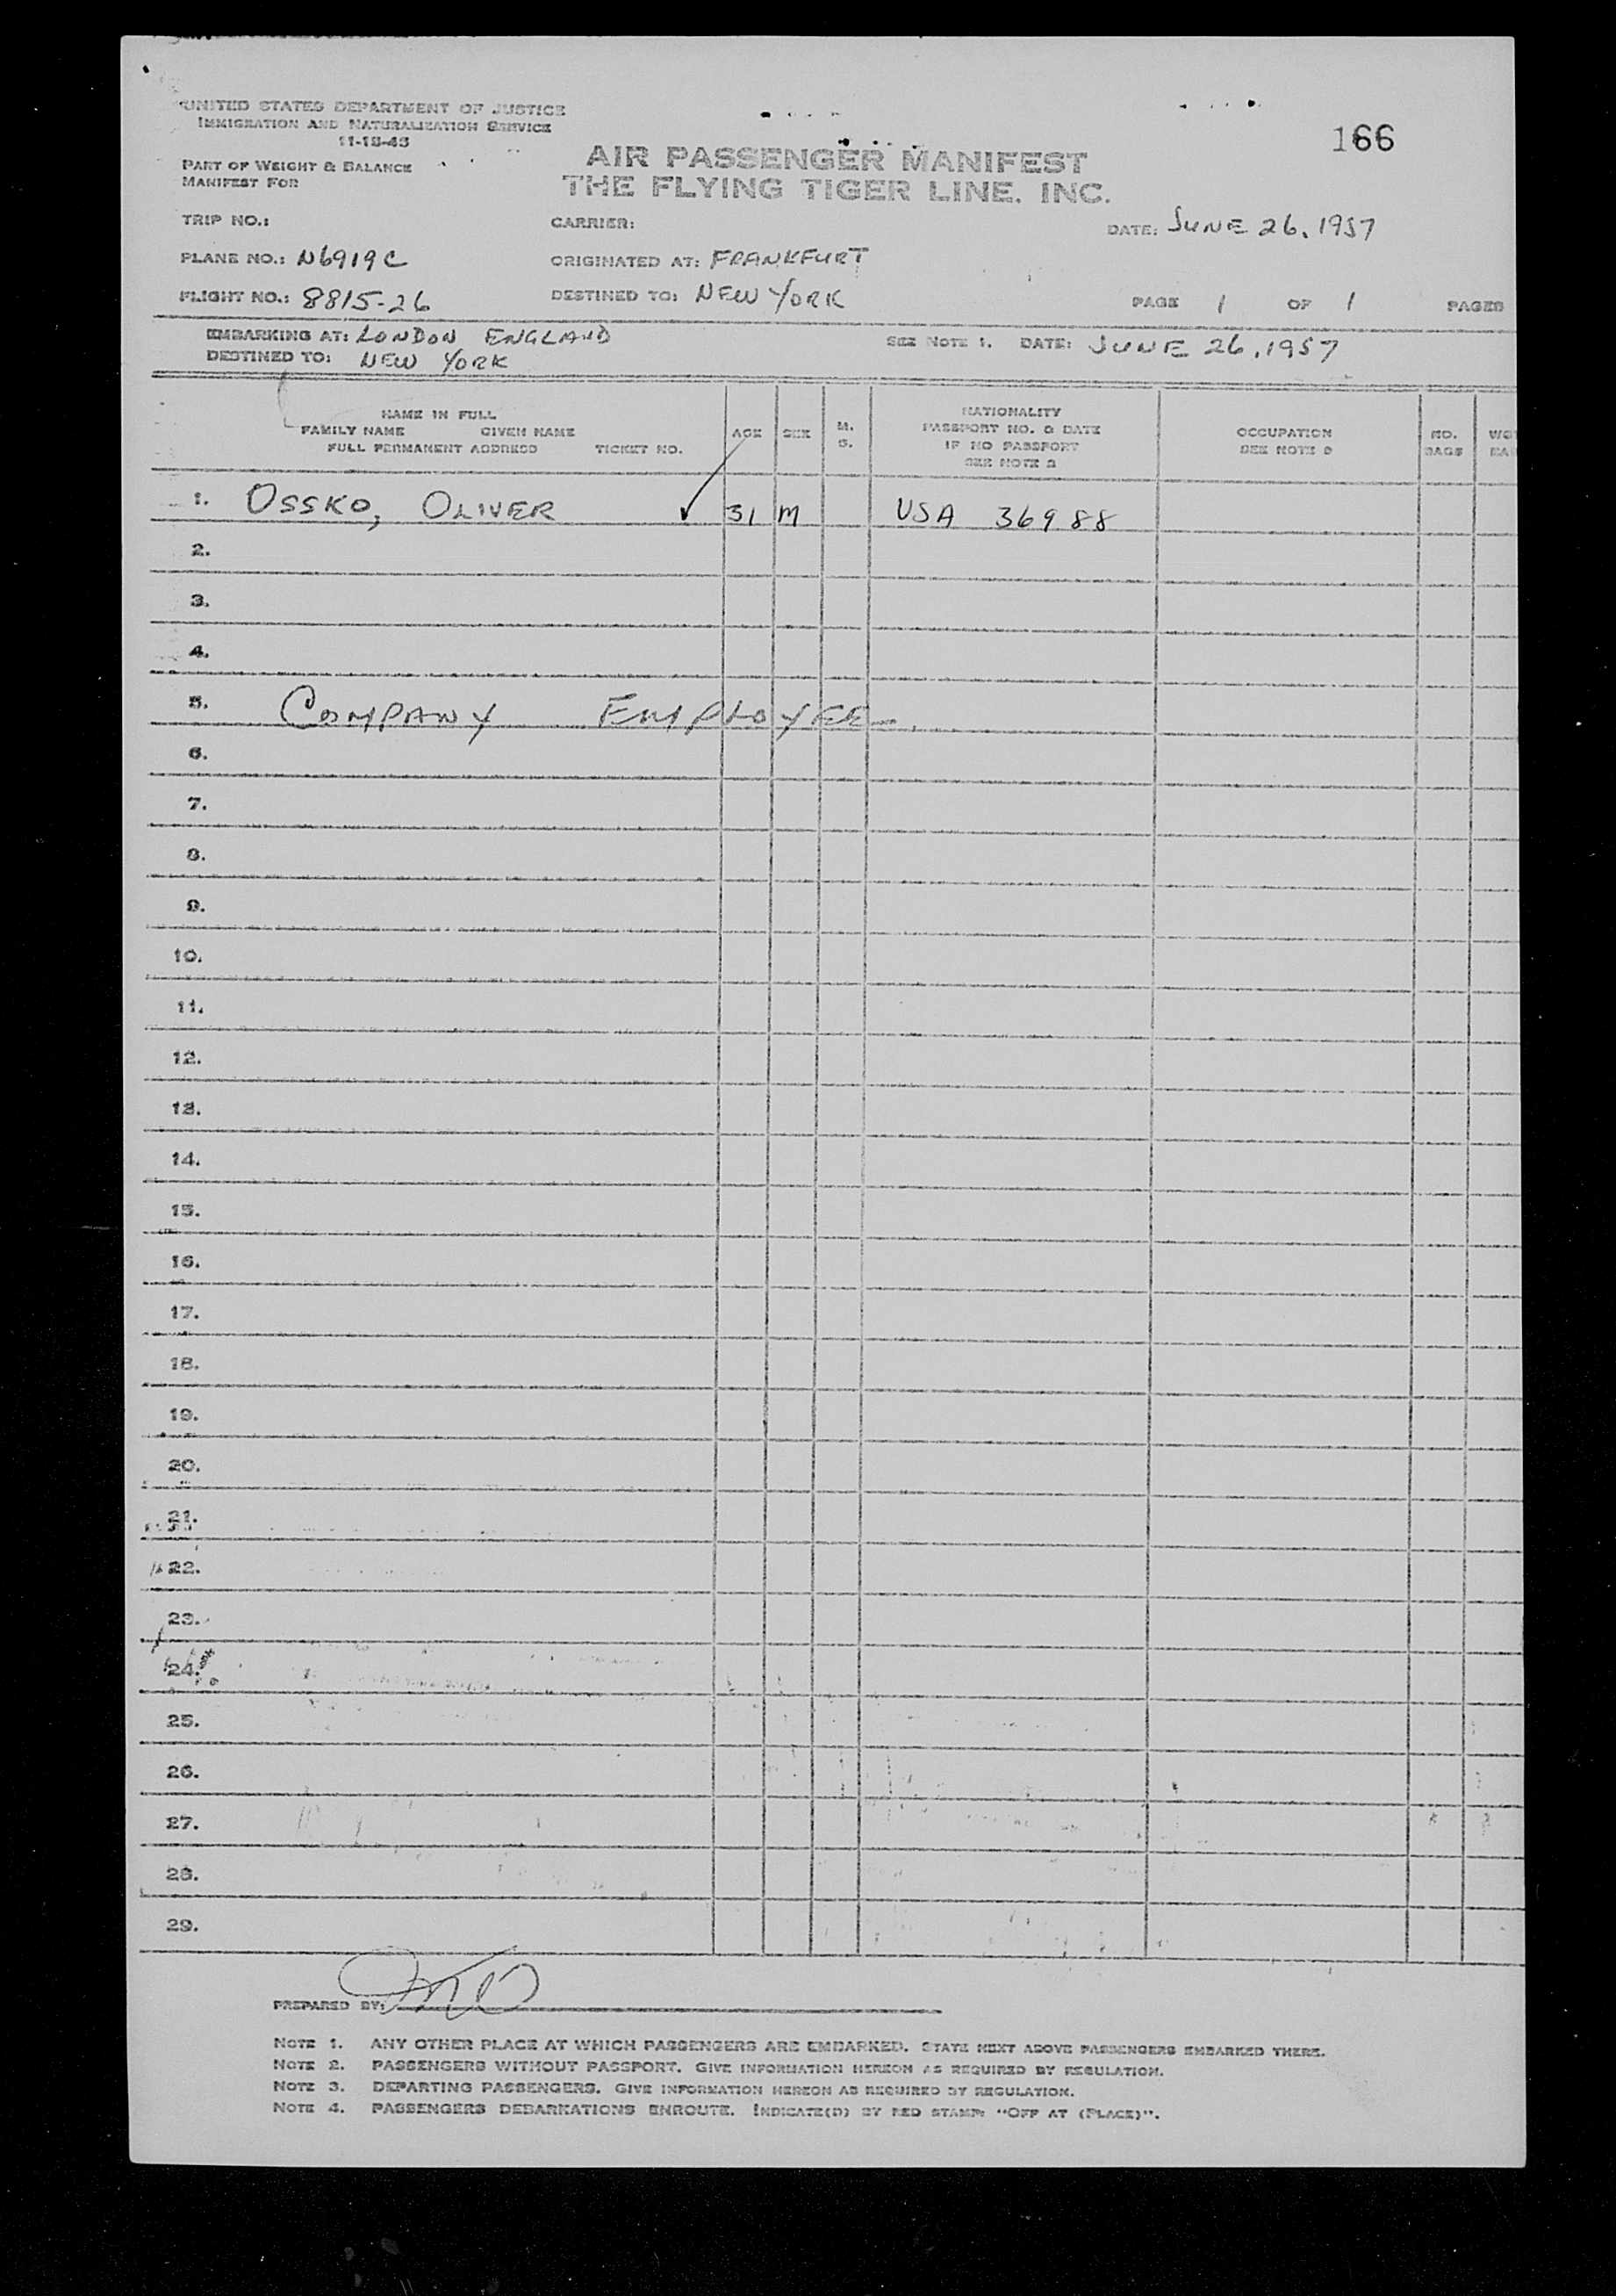 UNITED STATES DEPARTMENT OF JUSTICE
IMMIGRATION AND NATURALIZATION SERVICE
11-18-43
166
PART OF WEIGHT & BALANCE
MANIFEST FOR
AIR PASSENGER MANIFEST
THE FLYING TIGER LINE. INC.
TRIP NO.: CARRIER: DATE: JUNE 26, 1957
PLANE NO.: N6919C ORIGINATED AT: FRANKFURT
FLIGHT NO.: 8815-26 DESTINED TO: NEW YORK PAGE 1 OF 1 PAGES
EMBARKING AT: LONDON ENGLAND SEE NOTE 1. DATE: JUNE 26, 1957
DESTINED TO: NEW YORK
NAME IN FULL
FAMILY NAME GIVEN NAME
FULL PERMANENT ADDRESS TICKET NO.
AGE
SEX
M.
S.
NATIONALITY
PASSPORT NO. & DATE
IF NO PASSPORT
SEE NOTE 2
OCCUPATION
SEE NOTE 3
NO.
BAGS
1. OSSKO, OLIVER ✓ 31 M USA 36988
2.
3.
4.
5. COMPANY EMPLOYEE
6.
7.
8.
9.
10.
11.
12.
13.
14.
15.
16.
17.
18.
19.
20.
21.
22.
23.
24.
25.
26.
27.
28.
29.
PREPARED BY:
NOTE 1. ANY OTHER PLACE AT WHICH PASSENGERS ARE EMBARKED. STATE NEXT ABOVE PASSENGERS EMBARKED THERE.
NOTE 2. PASSENGERS WITHOUT PASSPORT. GIVE INFORMATION HEREON AS REQUIRED BY REGULATION.
NOTE 3. DEPARTING PASSENGERS. GIVE INFORMATION HEREON AS REQUIRED BY REGULATION.
NOTE 4. PASSENGERS DEBARKATIONS ENROUTE. INDICATE(D) BY RED STAMP: "OFF AT (PLACE)".